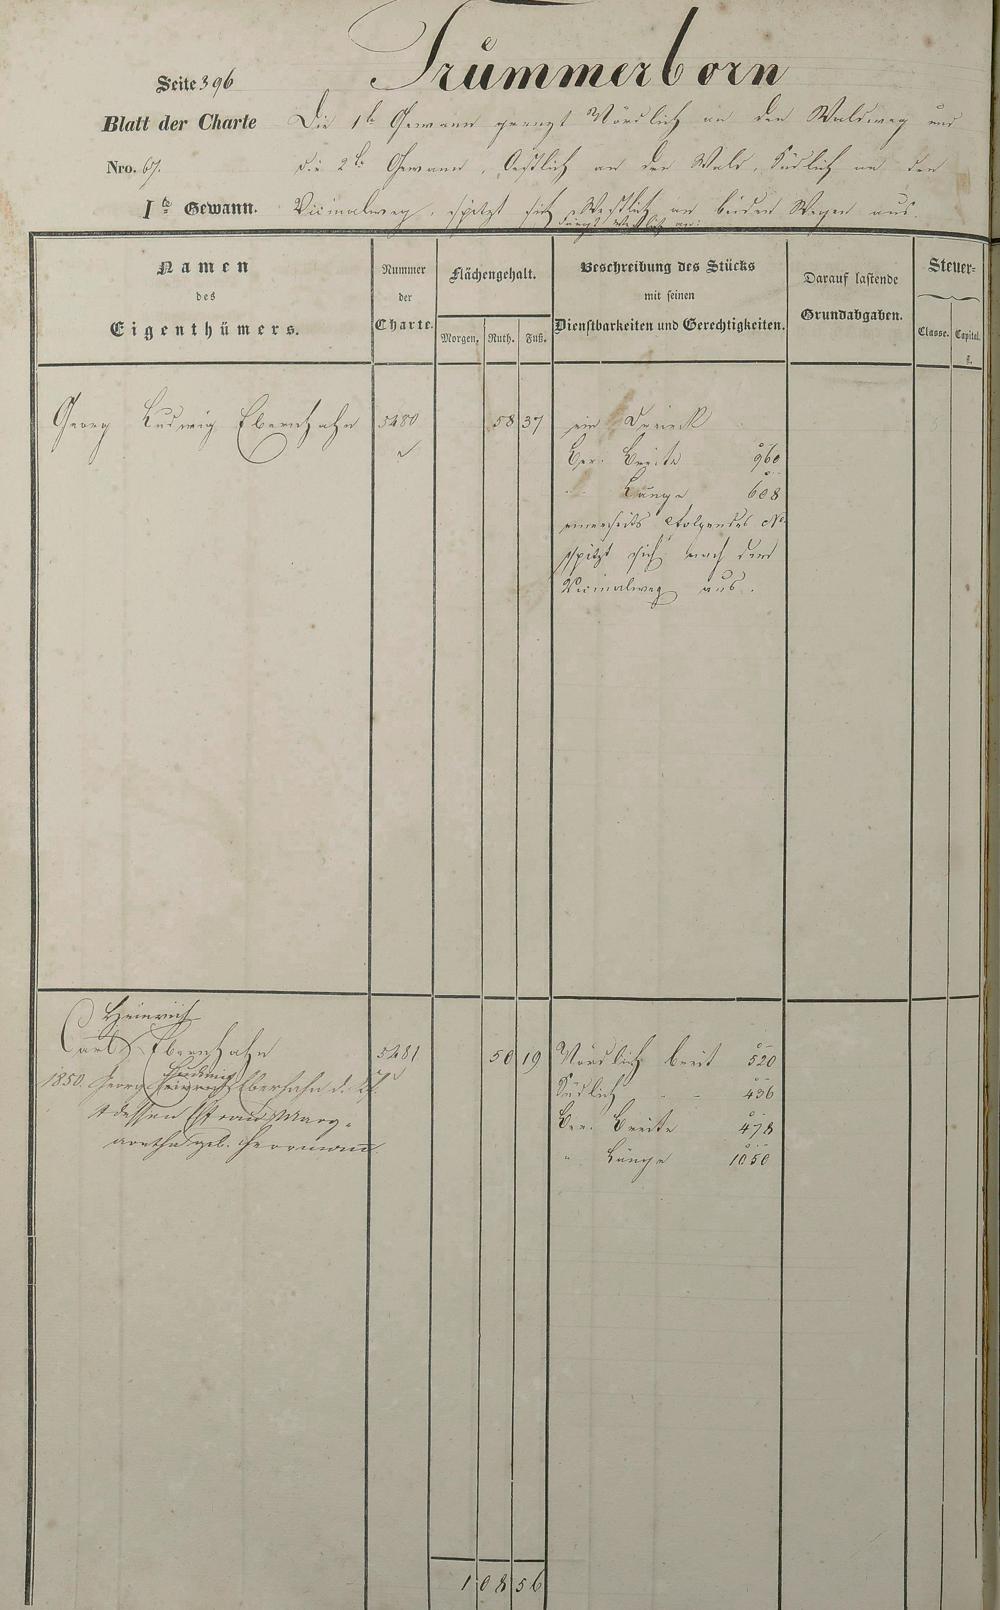 Trümmerborn
Seite 396
Blatt der Charte
Nro. 67.
I te Gewann.
Die 1te Gewann grenzt Nördlich an den Waldweg und
die 2te Gewann, Oestlich an den Wald, Südlich an den
Vicinalweg, spitzt sich Westlich an beiden Wegen aus.
Namen
des
Eigenthümers.
Nummer
der
Charte.
Flächengehalt.
Morgen. Ruth. Fuß.
Beschreibung des Stücks
mit seinen
Dienstbarkeiten und Gerechtigkeiten.
Darauf lastende
Grundabgaben.
Steuer-
Classe. Capital.
fl.
Georg Ludwig Ebertshahn 5480 58 37 ein Dreieck
Ber. Breite 960
" Länge 608
einerseits folgendes No.
spitzt sich nach dem
Vicinalweg aus.
Heinrich
Carl Ebertshahn 5481 50 19 Nördlich breit 520
1850. Georg Ludwig Heinrich
Südlich " 436
dessen Frau Marg-
aretha geb. Herrmann
Ber. Breite 478
" Länge 1050
1 08 56